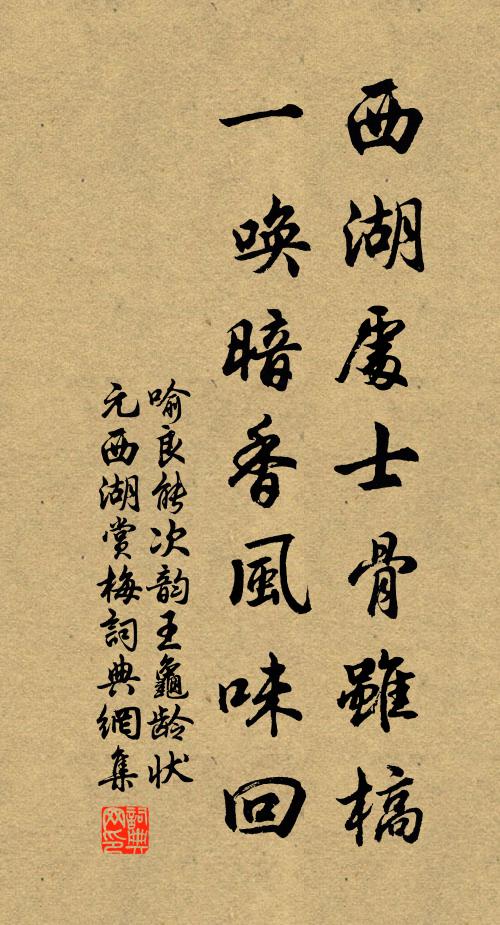 西湖處士骨雖槁
一喚暗香風味回
喻良能次韵王龜龄状
元西湖赏梅詞典網集
詞典
网印